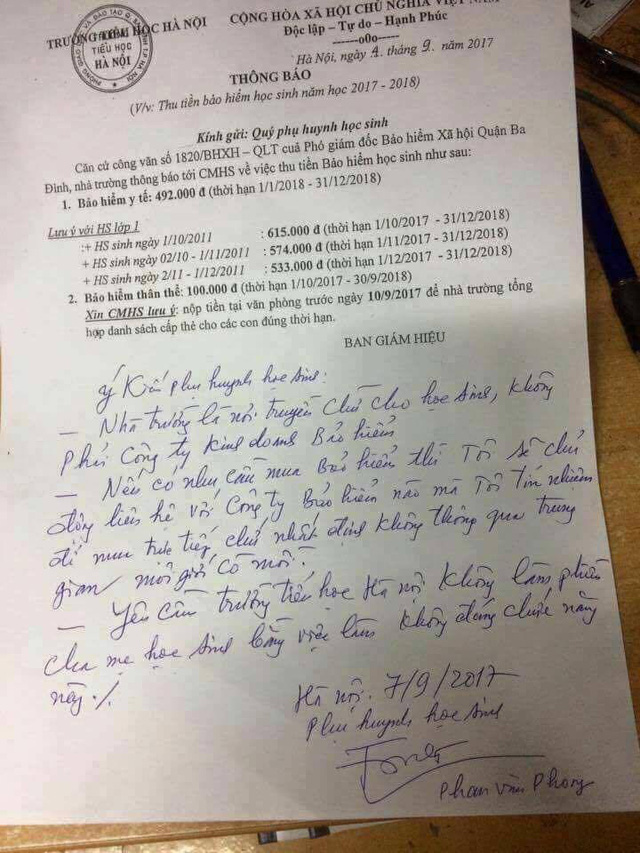 TRƯỜNG TIỂU HỌC HÀ NỘI
CỘNG HÒA XÃ HỘI CHỦ NGHĨA VIỆT NAM
Độc lập – Tự do – Hạnh Phúc
------o0o------
TIỂU HỌC
HÀ NỘI
Hà Nội, ngày 1. tháng 9. năm 2017
THÔNG BÁO
(V/v: Thu tiền bảo hiểm học sinh năm học 2017 - 2018)
Kính gửi: Quý phụ huynh học sinh
Căn cứ công văn số 1820/BHXH – QLT cuả Phó giám đốc Bảo hiểm Xã hội Quận Ba
Đình, nhà trường thông báo tới CMHS về việc thu tiền Bảo hiểm học sinh như sau:
1. Bảo hiểm y tế: 492.000 đ (thời hạn 1/1/2018 - 31/12/2018)
Lưu ý với HS lớp 1
:+ HS sinh ngày 1/10/2011 : 615.000 đ (thời hạn 1/10/2017 - 31/12/2018)
+ HS sinh ngày 02/10 - 1/11/2011 : 574.000 đ (thời hạn 1/11/2017 - 31/12/2018)
+ HS sinh ngày 2/11 - 1/12/2011 : 533.000 đ (thời hạn 1/12/2017 - 31/12/2018)
2. Bảo hiểm thân thể: 100.000 đ (thời hạn 1/10/2017 - 30/9/2018)
Xin CMHS lưu ý: nộp tiền tại văn phòng trước ngày 10/9/2017 để nhà trường tổng
hợp danh sách cấp thẻ cho các con đúng thời hạn.
BAN GIÁM HIỆU
Ý Kiến phụ huynh học sinh:
– Nhà trường là nơi truyền Chữ cho học sinh, không
phải Công ty kinh doanh Bảo hiểm
– Nếu có nhu cầu mua Bảo hiểm thì Tôi sẽ chủ
động liên hệ với Công ty Bảo hiểm nào mà Tôi Tín nhiệm
để mua trực tiếp, chứ nhất định không thông qua trung
gian môi giới cò mồi.
– Yêu cầu trường tiểu học Hà nội không làm phiền
cha mẹ học sinh bằng việc làm không đúng chức năng
này./.
Hà nội. 7/9/2017
Phụ huynh học sinh
Phan Văn Phong